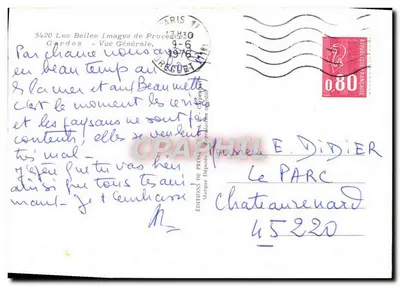 5420 Les Belles Images de Provence
Gordes - Vue Générale.
PARIS
17H30
9-6
1976
0,80
Par chance nous avons
en beau temps au
et aux Beaumettes
c'est le moment les cerises
et les paysans ne sont pas
contents, elles se vendent
très mal -
J'espère que tu vas bien
ainsi que tous tes ani-
maux - Je t'embrasse
CPAPHIL
EDITIONS DE PROVENCE
Marque Déposée
Monsieur E. DIDIER
LE PARC
Chateaurenard
45220